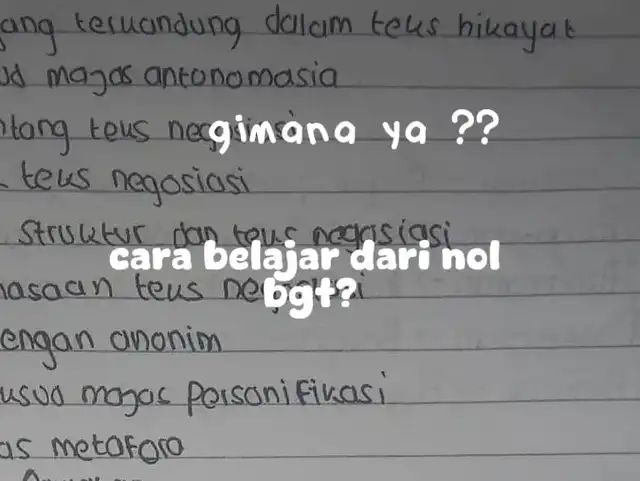 ang terkandung dalam teks hikayat
ud majas antonomasia
ntang teks
gimana ya ??
teks negosiasi
struktur dan teks negosiasi
cara belajar dari nol
bgt?
asaan teks
engan anonim
usud majas personifikasi
as metafora